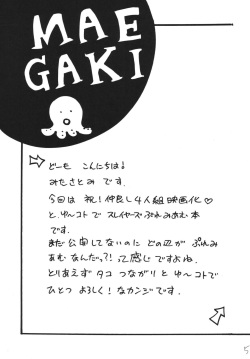 MAE
GAKI
どーも こんにちは!
みたさとみ です.
今回は 祝!仲良し4人組映画化♡
と、ゆ〜コトで スレイヤーズぷれみあむ本
です.
まだ公開してないのに どの辺が ぷれみ
あむ なんだっ?!って感じですよね.
とりあえず タコ つながり と ゆ〜コトで
ひとつ よろしく! なカンジです.